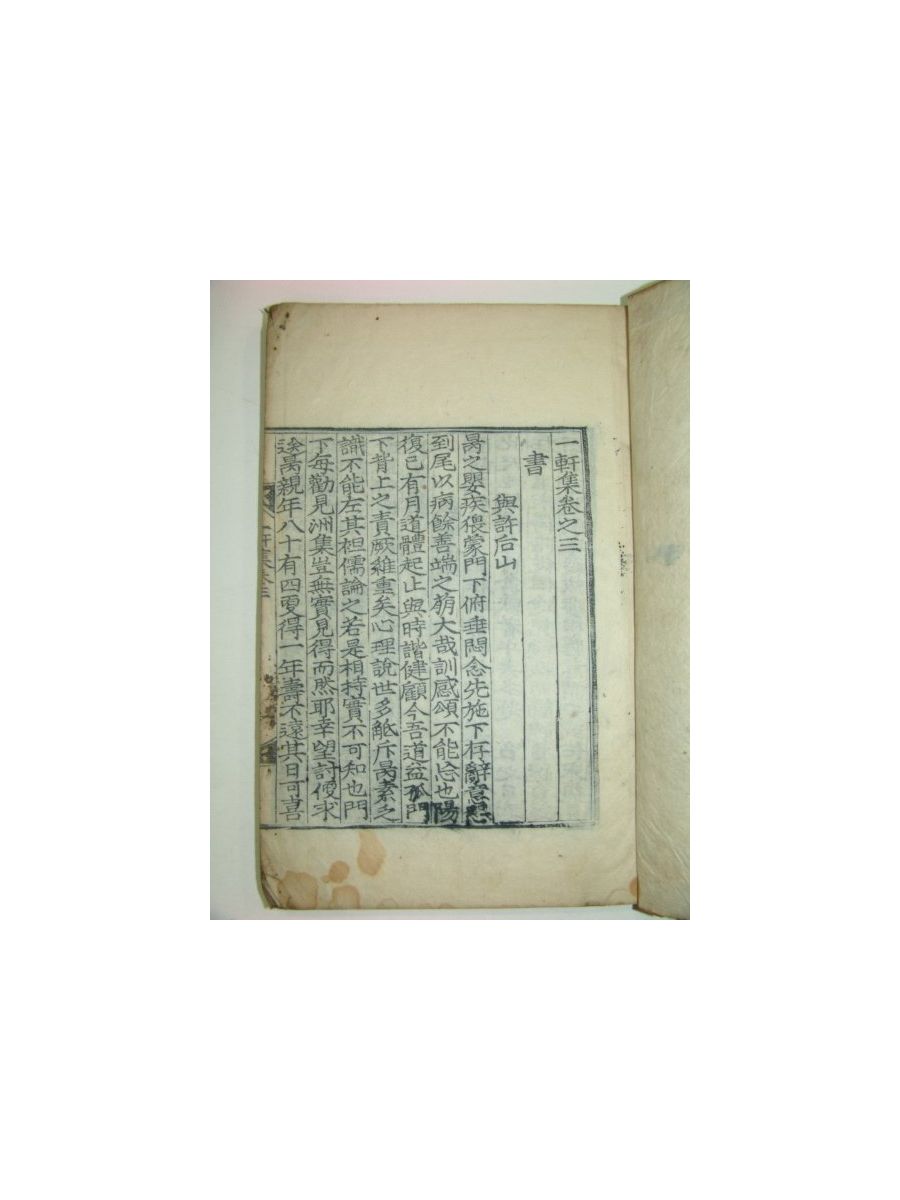 一軒集卷之三
書
與許后山
昺之嬰疾猥蒙門下俯垂悶念先施下存辭意懇
到尾以病餘善端之萌大哉訓感頌不能忘也陽
復已有月道體起止與時諧健顧今吾道益孤門
下背上之責厥維重矣心理說世多觝斥昺素之
識不能左其袒儒論之若是相持實不可知也門
下每勸見洲集豈無實見得而然耶幸望討便求
送昺親年八十有四更得一年壽不遠其日可喜
一軒集卷三